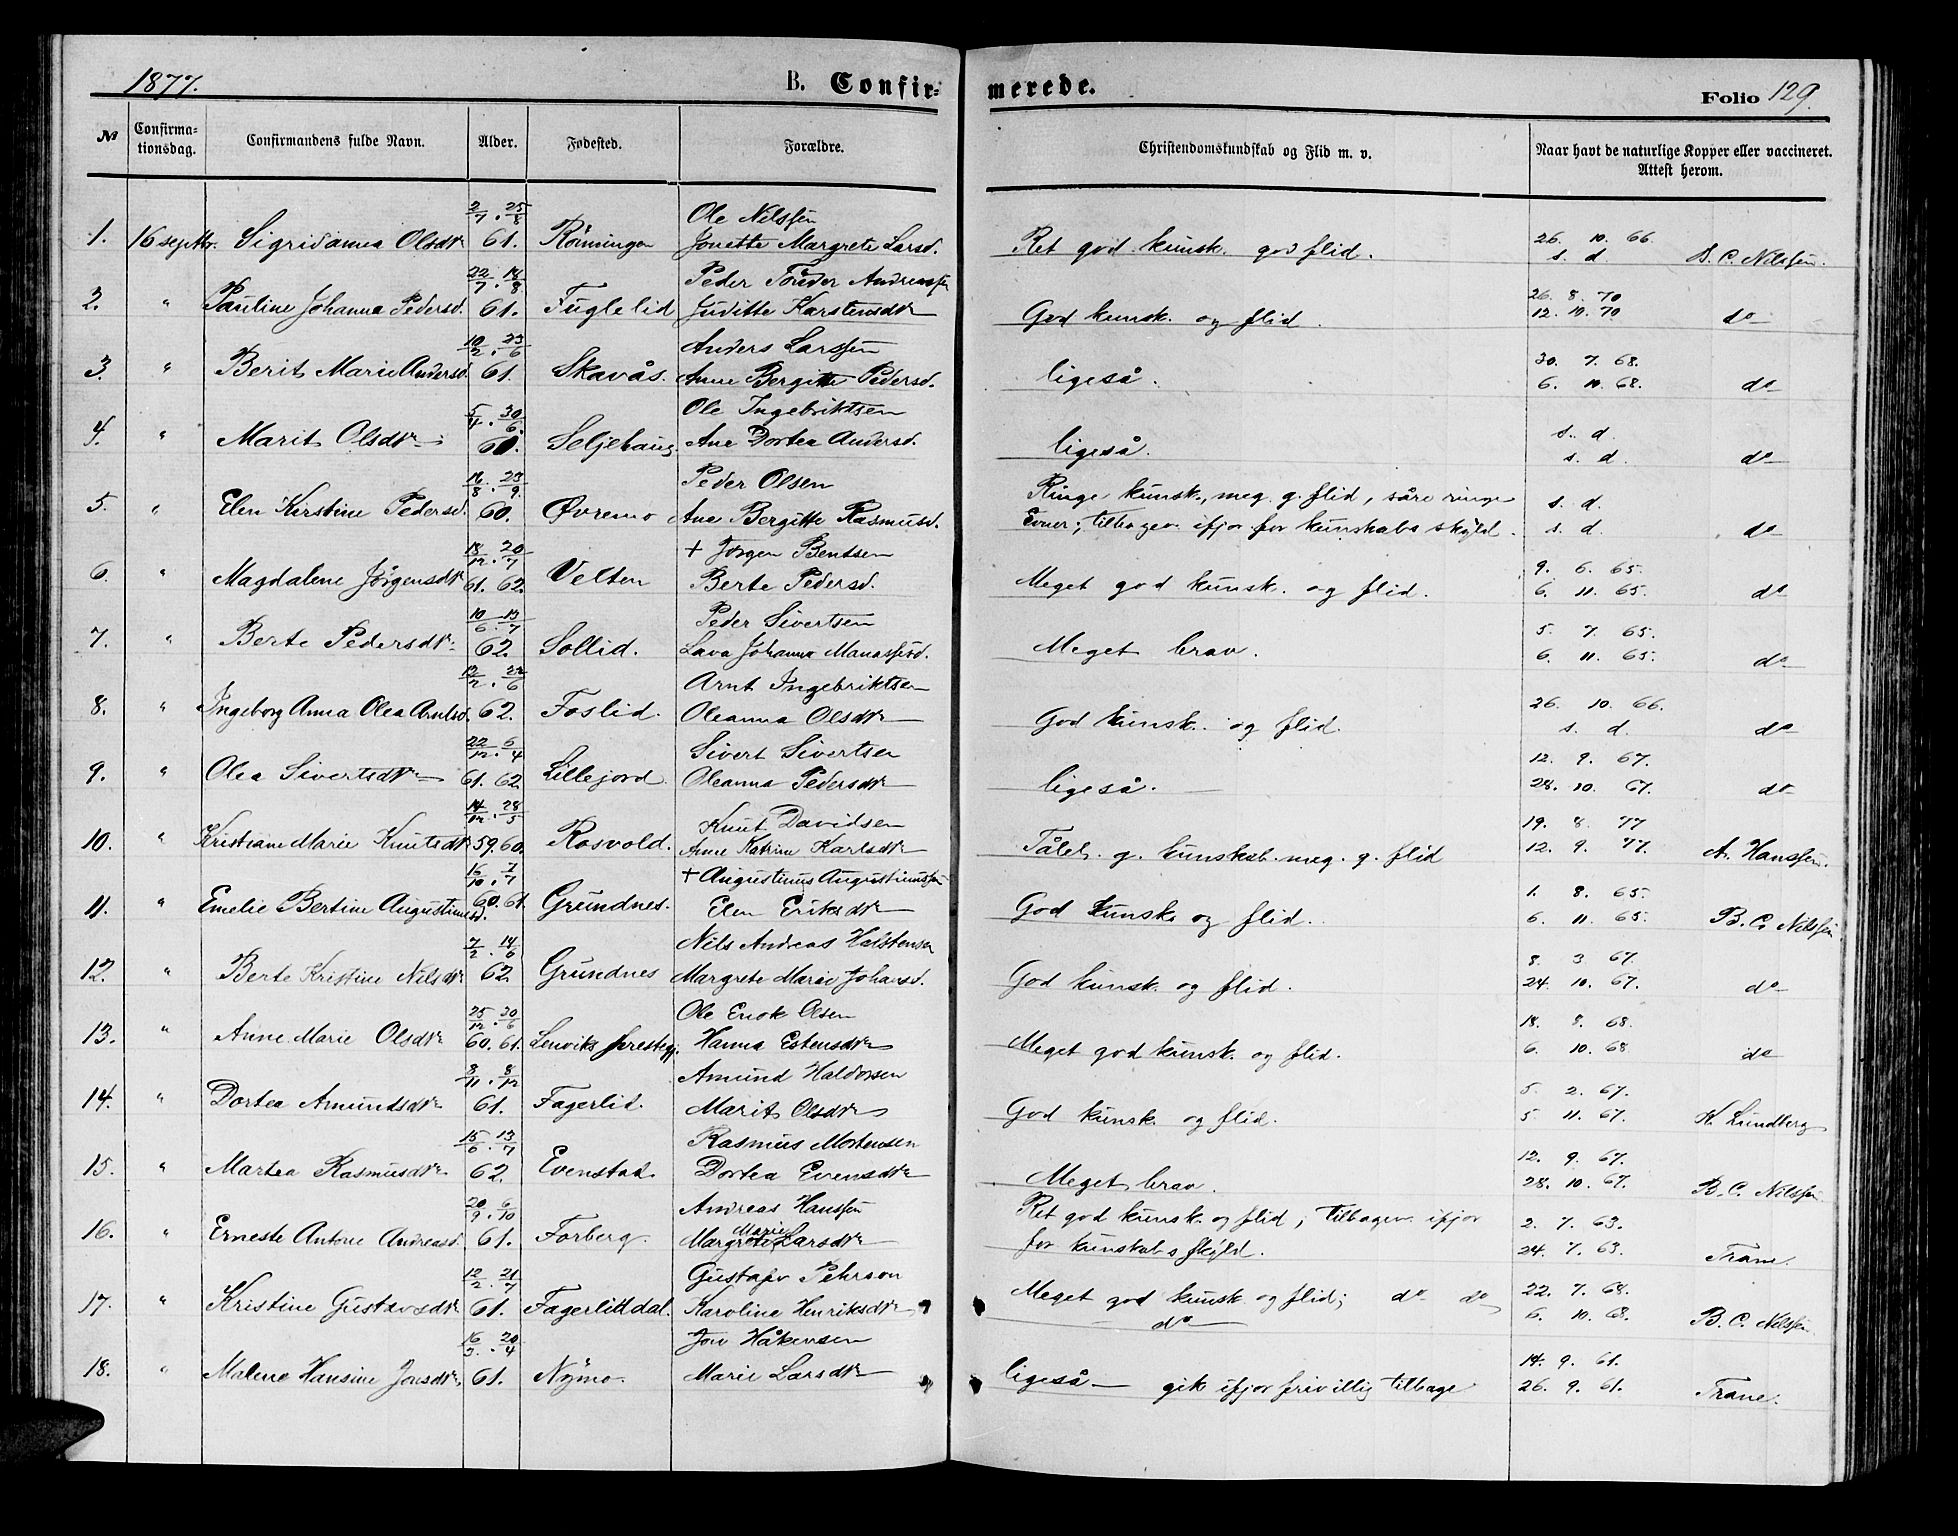 1877. B. Confirmerede. Folio 129.
№ Confirmationsdag. Confirmandens fulde Navn. Alder. Fødested. Forældre. Christendomskundskab og Flid m. v. Naar havt de naturlige Kopper eller vaccineret. Attest herom.
2/7. 25/8 Ole Nilssen
1. 16 septbr. Sigridanna Olsdtr 61. Jonette Margrete Larsd. Ret god kunsk. god flid. 26. 10. 66. s. d B. C. Nilssen.
22/7. 18/8 Peder Andreassen
2. " Pauline Johanna Pedersd. 61. Fuglelid Juditte Karstensdtr God kunsk. og flid. 26. 8. 70 12. 10. 70 do
10/2. 23/6 Anders Larssen
3. " Berit Marie Andersd. 61. Skavås. Anne Bergitte Pedersd. ligeså. 30. 7. 68. 6. 10. 68. do
5/4. 30/6. Ole Ingebriktsen
4. " Marit Olsdtr 60. Seljehaug Ane Dortea Andersd. ligeså. s. d. s. d. do
16/8. 23/9. Peder Olsen Ringe kunsk., meg. g. flid, såre ringe s. d.
5. " Elen Kirstine Pedersd. 60. Øvremo Ane Bergitte Rasmusd. Evner; tilbagev. ifjor for kunskabs skyld. s. d. do
18/12. 20/7 + Jørgen Bentsen
6. " Magdalene Jørgensdtr 61. 62. Velten Berte Pedersd. Meget god kunsk. og flid. 9. 6. 65. 6. 11. 65. do
10/6. 13/7 Peder Sivertsen
7. " Berte Pedersdtr 62. Sollid. Lava Johanna Manassesd. Meget brav. 5. 7. 65. 6. 11. 65. do
12/2. 22/6 Arnt Ingebriktsen
8. " Ingeborg Anna Olea Arntsd. 62. Foslid. Oleanna Olsdtr God kunsk. og flid. 26. 10. 66. s. d. do
22/12. 5/4 Sivert Sivertsen
9. " Olea Sivertsdtr 61. 62 Lillejord Oleanna Pedersdtr ligeså. 12. 9. 67. 28. 10. 67. do
14/12. 28/5 Knut Davidsen
10. " Kristiane Marie Knutsdtr 59. 60. Rosvold. Anne Katrine Karlsdtr Tålel. g. kunskab. meg. g. flid 19. 8. 77 12. 9. 77. A. Hanssen.
16/10. 7/7 + Augustinus Augustinussen
11. " Emelie Bertine Augustinusd. 60. 61. Grundnes. Elen Eriksdtr God kunsk og flid. 1. 8. 65. 6. 11. 65. B. C. Nilssen
7/2. 14/6 Nils Andreas Halstensen
12. " Berte Kristine Nilsdtr 62. Grundnes Margrete Marie Johansd. God kunsk. og flid. 8. 3. 67. 24. 10. 67. do
25/12. 30/6 Ole Enok Olsen
13. " Anne Marie Olsdtr 60. 61. Lenviks prestegj. Hanna Estensdtr Meget god kunsk. og flid. 18. 8. 68. 6. 10. 68 do
8/11. 8/12 Amund Haldorsen
14. " Dortea Amundsdtr 61. Fagerlid. Marit Olsdtr God kunsk. og flid. 5. 2. 67. 5 11. 67. K. Lundberg
15/6. 13/7 Rasmus Mortensen
15. " Martea Rasmusdtr 62. Evenstad. Dortea Evensdtr Meget brav. 12. 9. 67. 28. 10. 67. B. C. Nilssen
20/9. 6/10 Andreas Hanssen Ret god kunsk. og flid; tilbagev. ifjor 2. 7. 63.
16. " Erneste Antone Andreasd. 61. Forberg. Margrete Marie Larsdtr for kunskabs skyld. 24. 7. 63. Trane.
12/2. 21/7 Gustafv Pehrson
17. " Kristine Gustavsdtr 61. Fagerliddal. Karoline Henriksdtr Meget god kunsk. og flid; do do do 22. 7. 68. 6. 10. 68. B. C. Nilssen
16/3. 20/4 Jon Håkensen
18. " Malene Hansine Jonsdtr. 61. Nymo. Marie Larsdtr ligeså gik ifjor frivillig tilbage 14. 9. 61. 26. 9. 61. Trane.